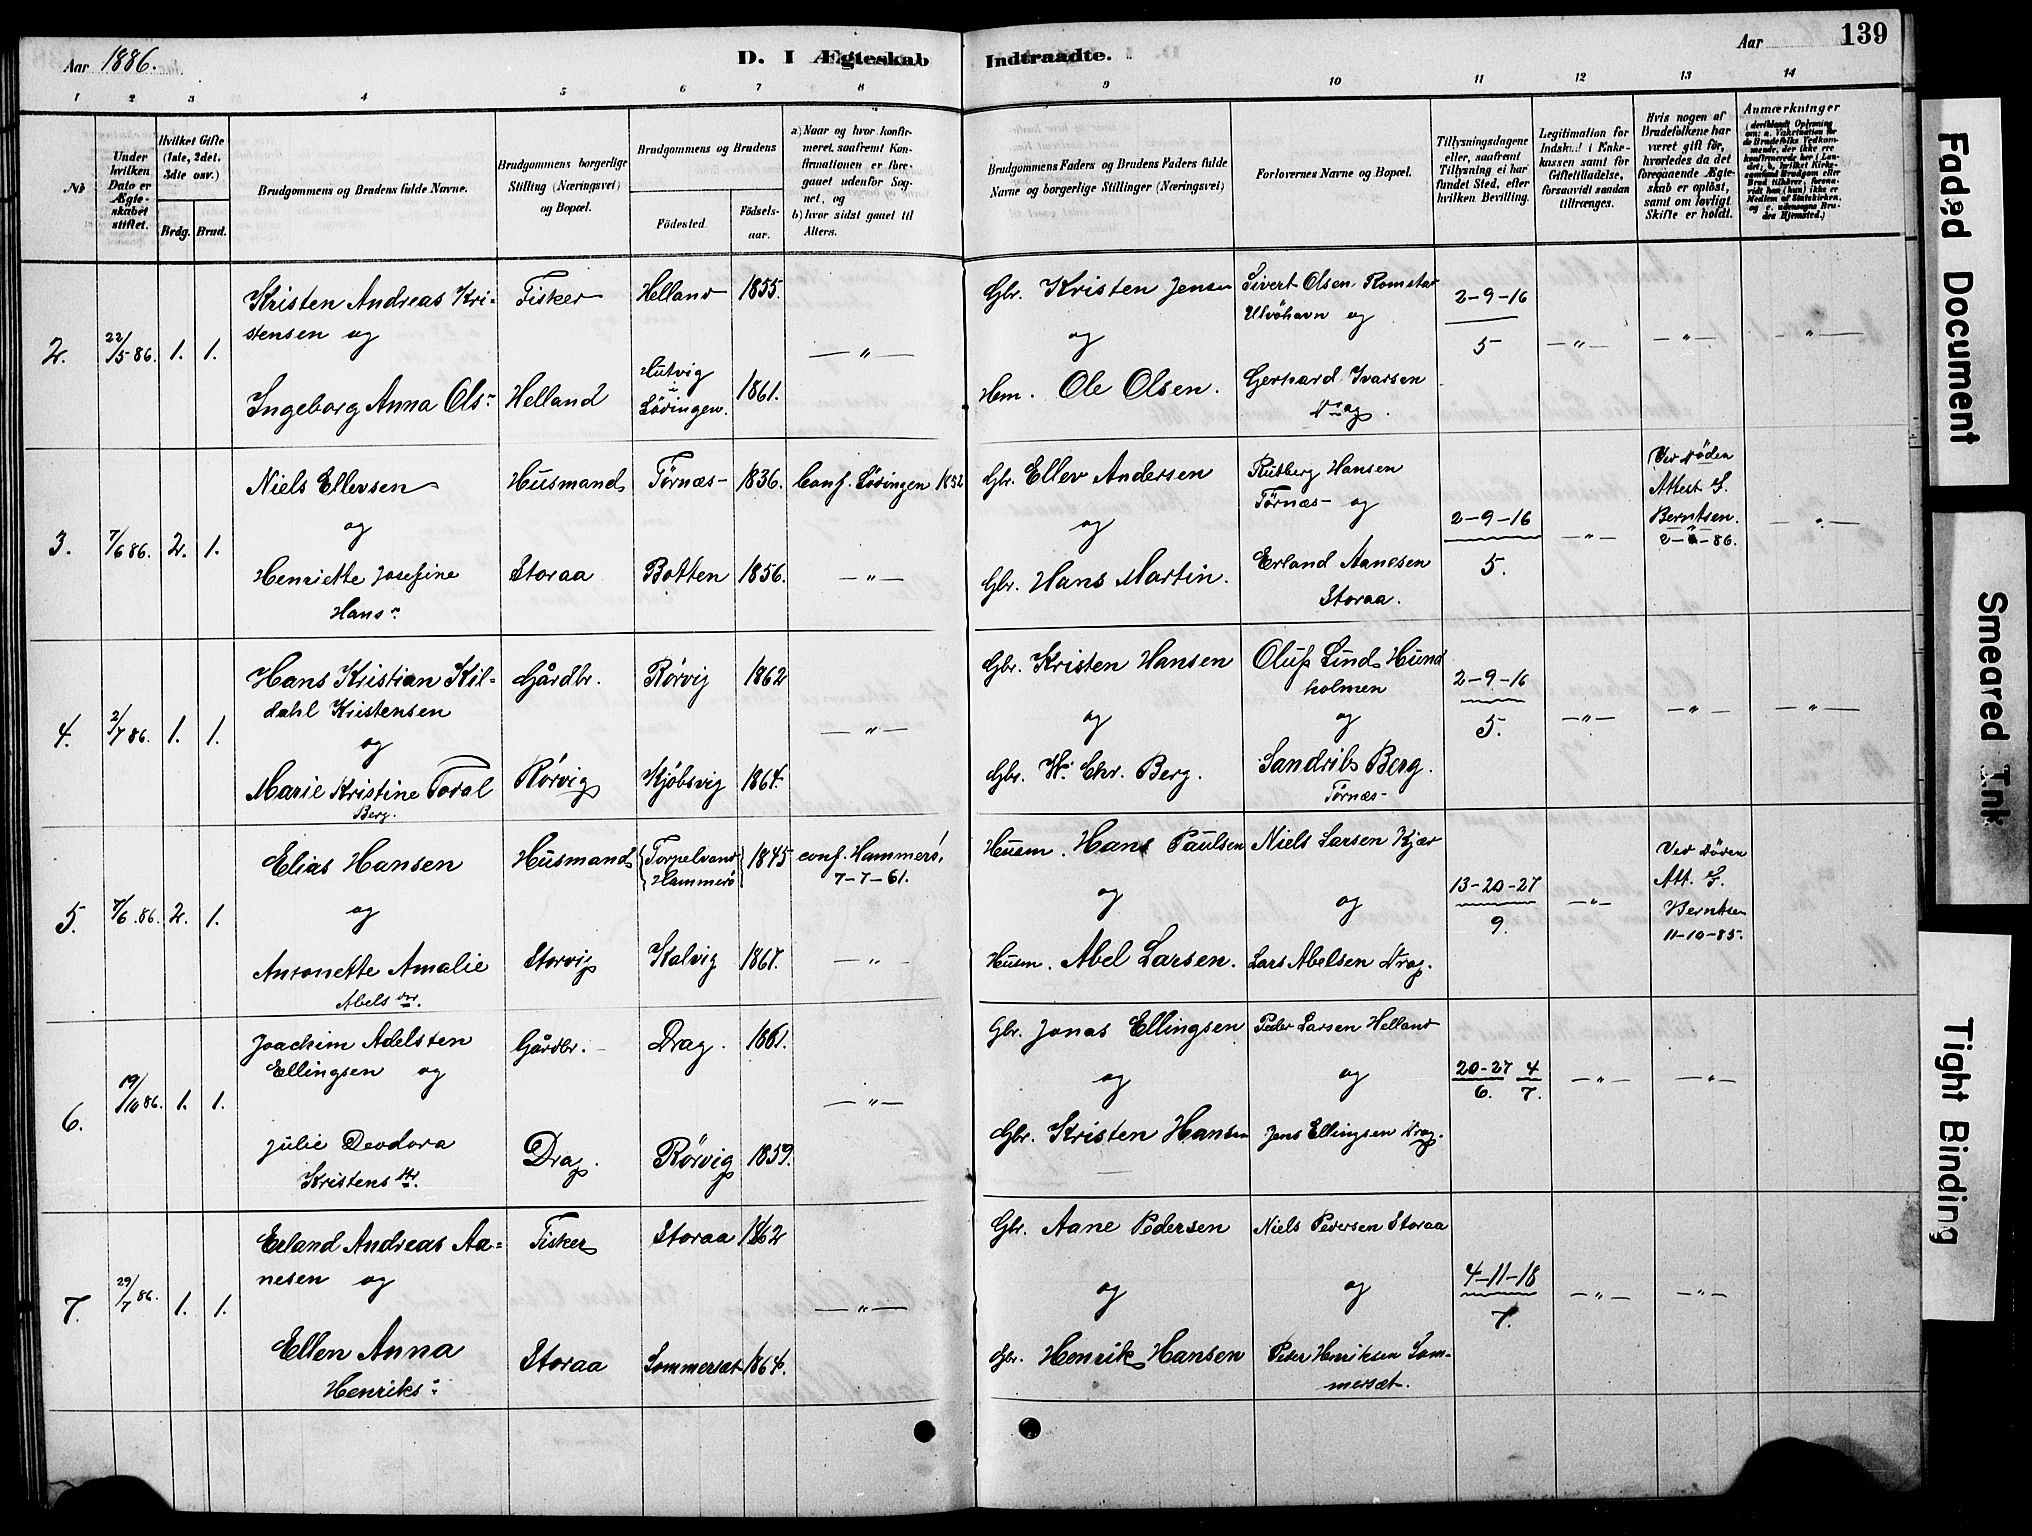 Aar 1886.
D. I Ægteskab Indtraadte.
Aar
139
1 2 3 4 5 6 7 8 9 10 11 12 13 14
No
Under hvilken Dato er Ægteskabet stiftet.
Hvilket Gifte (1ste, 2det. 3die osv.)
Brdg. Brud.
Brudgommens og Brudens fulde Navne.
Brudgommens borgerlige Stilling (Næringsvei) og Bopæl.
Brudgommens og Brudens
Fødested.
Fødselsaar.
a) Naar og hvor konfirmeret, saafremt Konfirmationen er foregaaet udenfor Sognet, og
b) hvor sidst gaaet til Alters.
Brudgommens Faders og Brudens Faders fulde Navne og borgerlige Stillinger (Næringsvei)
Forlovernes Navne og Bopæl.
Tillysningsdagene eller, saafremt Tillysning ei har fundet Sted, efter hvilken Bevilling.
Legitimation for Indskud i Enkekassen samt for Giftetilladelse, forsaavidt saadan tiltrænges.
Hvis nogen af Brudefolkene har været gift før, hvorledes da det foregaaende Ægteskab er opløst, samt om lovligt Skifte er holdt.
Anmærkninger
2. 22/5 86. 1. 1.
Kristen Andreas Kristensen og
Fisker Helland 1855.
Gbr. Kristen Jensen
og
Sivert Olsen Romstad
Ulvöhavn og
2-9-16
5
Ingeborg Anna Ols"
Helland
Hutvig i Lödingen. 1861.
Hem. Ole Olsen.
Gerhard Ivarsen
Drag.
3. 7/6 86. 2. 1.
Niels Ellevsen
og
Husmand Tørnæs 1836. Conf. Lödingen 1852
Gbr. Ellev Andersen
og
Rutberg Hansen
Törnæs og
2-9-16
5.
Ved Döden
Attest S.
Berntsen.
Henriette Josefine
Hans"
Storaa Botten 1856.
Gbr. Hans Martin.
Erland Aanesen
Storaa.
4. 2/7 86. 1. 1.
Hans Kristian Kildahl Kristensen
og
Gårdbr. Rörvig 1862
Gbr. Kristen Hansen
og
Oluf Lind Hundholmen
og
2-9-16
5.
Marie Kristine Toral
Berg.
Rörvig Kjöbsvig 1864.
Gbr. H. Chr. Berg.
Sandrib Berg.
Törnæs
5. 7/6 86. 2. 1.
Elias Hansen
og
Husmand
Torpelvand Hammerö 1845
conf. Hammerö,
7-7-61.
Husm. Hans Paulsen
og
Niels Larsen Kjær
og
13-20-27
9.
Ved Döden
Att. S.
Berntsen
11-10-85.
Antonette Amalie
Abels dtr.
Storvig Kalvig
Husm. Abel Larsen.
Lars Abelsen Drag.
6. 19/10 86. 1. 1.
Joachim Adelsten
Ellingsen og
Gårdbr. Drag. 1861.
Gbr. Jonas Ellingsen
og
Peder Larsen Helland
og
20-27 4
6. 7.
Julie Deodora
Kristens dtr.
Drag. Rörvig 1859.
Gbr. Kristen Hansen
Jens Ellingsen Drag.
7. 29/7 86. 1. 1.
Erland Andreas Aanesen og
Fisker Storaa 1862
Gbr. Aane Pedersen
og
Niels Pedersen Storaa
og
4-11-18
7.
Ellen Anna
Henriks"
Storaa Sommersæt 1864.
Gbr. Henrik Hansen
Peder Henriksen Sommersæt.
Faded Document
Smeared Ink
Tight Binding